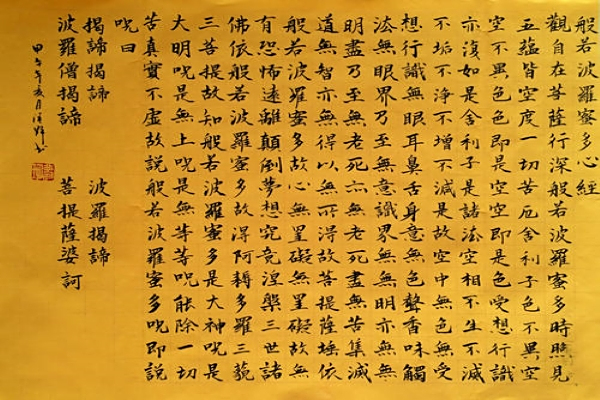 般若波羅蜜多心經
觀自在菩薩行深般若波羅蜜多時照見
五蘊皆空度一切苦厄舍利子色不異空
空不異色色即是空空即是色受想行識
亦復如是舍利子是諸法空相不生不滅
不垢不淨不增不減是故空中無色無受
想行識無眼耳鼻舌身意無色聲香味觸
法無眼界乃至無意識界無無明亦無無
明盡乃至無老死亦無老死盡無苦集滅
道無智亦無得以無所得故菩提薩埵依
般若波羅蜜多故心無罣礙無罣礙故無
有恐怖遠離顛倒夢想究竟涅槃三世諸
佛依般若波羅蜜多故得阿耨多羅三藐
三菩提故知般若波羅蜜多是大神呪是
大明呪是無上呪是無等等呪能除一切
苦真實不虛故說般若波羅蜜多呪即說
呪曰
揭諦揭諦 波羅揭諦
波羅僧揭諦 菩提薩婆訶
甲午年